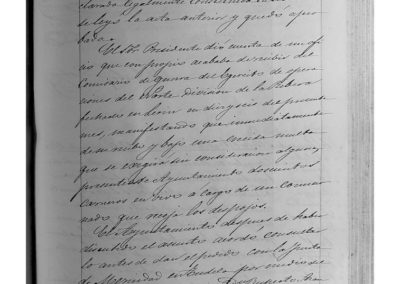 clarada legalmente constituida
se leyó la acta anterior y quedó apro
bada.
El Sr. Presidente dió cuenta de un ofi
cio que con propio acababa de recibir del
Comisario de guerra del Ejército de opera
ciones del Norte, División de la Ribera
fechado en Lerin en diez y seis del presente
mes, manifestando que inmediatamente
de su recibo y bajo una crecida multa
que se exigirá sin consideración alguna,
presente este Ayuntamiento doscientos
carneros en vivo a cargo de un comisio
nado que recoja los despojos.
El Ayuntamiento despues de haber
discutido el asunto acordó consultar
lo antes de dar el pedido con la Junta
de Merindad en Tudela por medio del